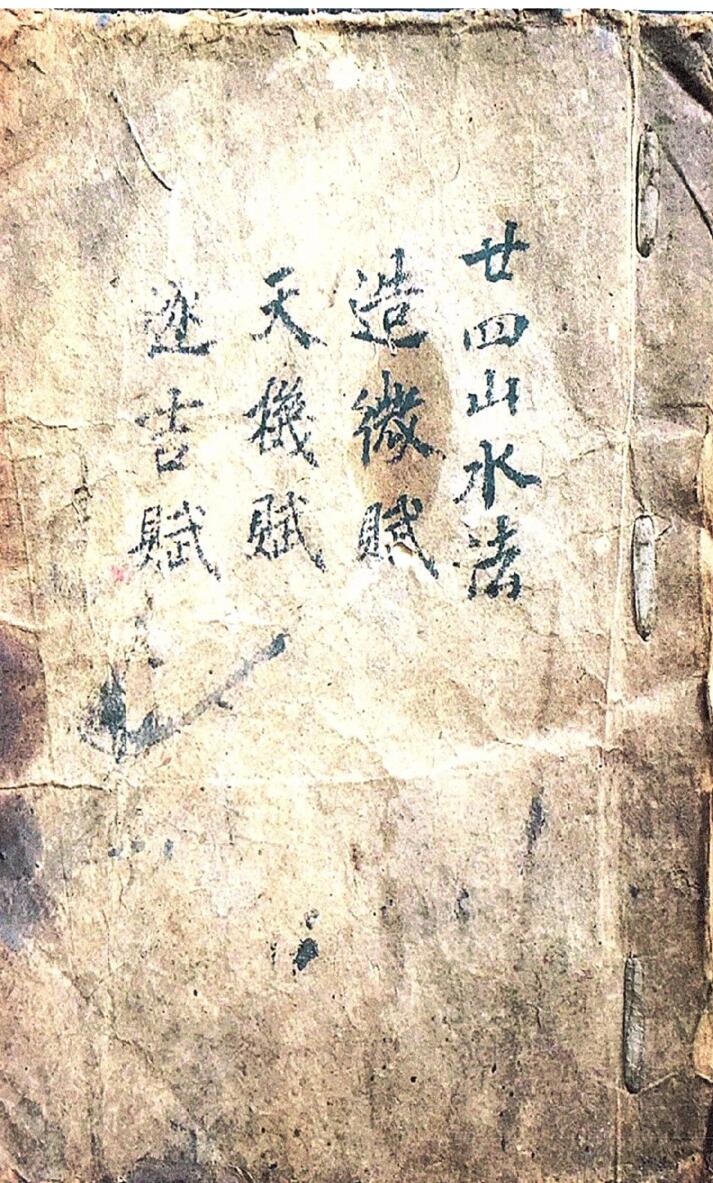 廿四山水法
造微賦
天機賦
吉賦